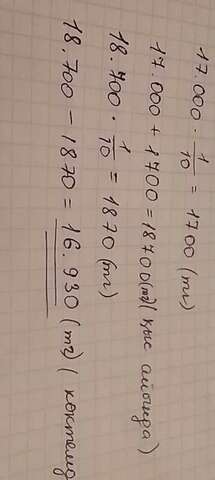 17.000 · 1/10 = 1700 (тг)
17.000 + 1700 = 18700(тг)( қыс айында)
18.700 · 1/10 = 1870 (тг)
18.700 - 1870 = 16.930 (тг) ( көктемде